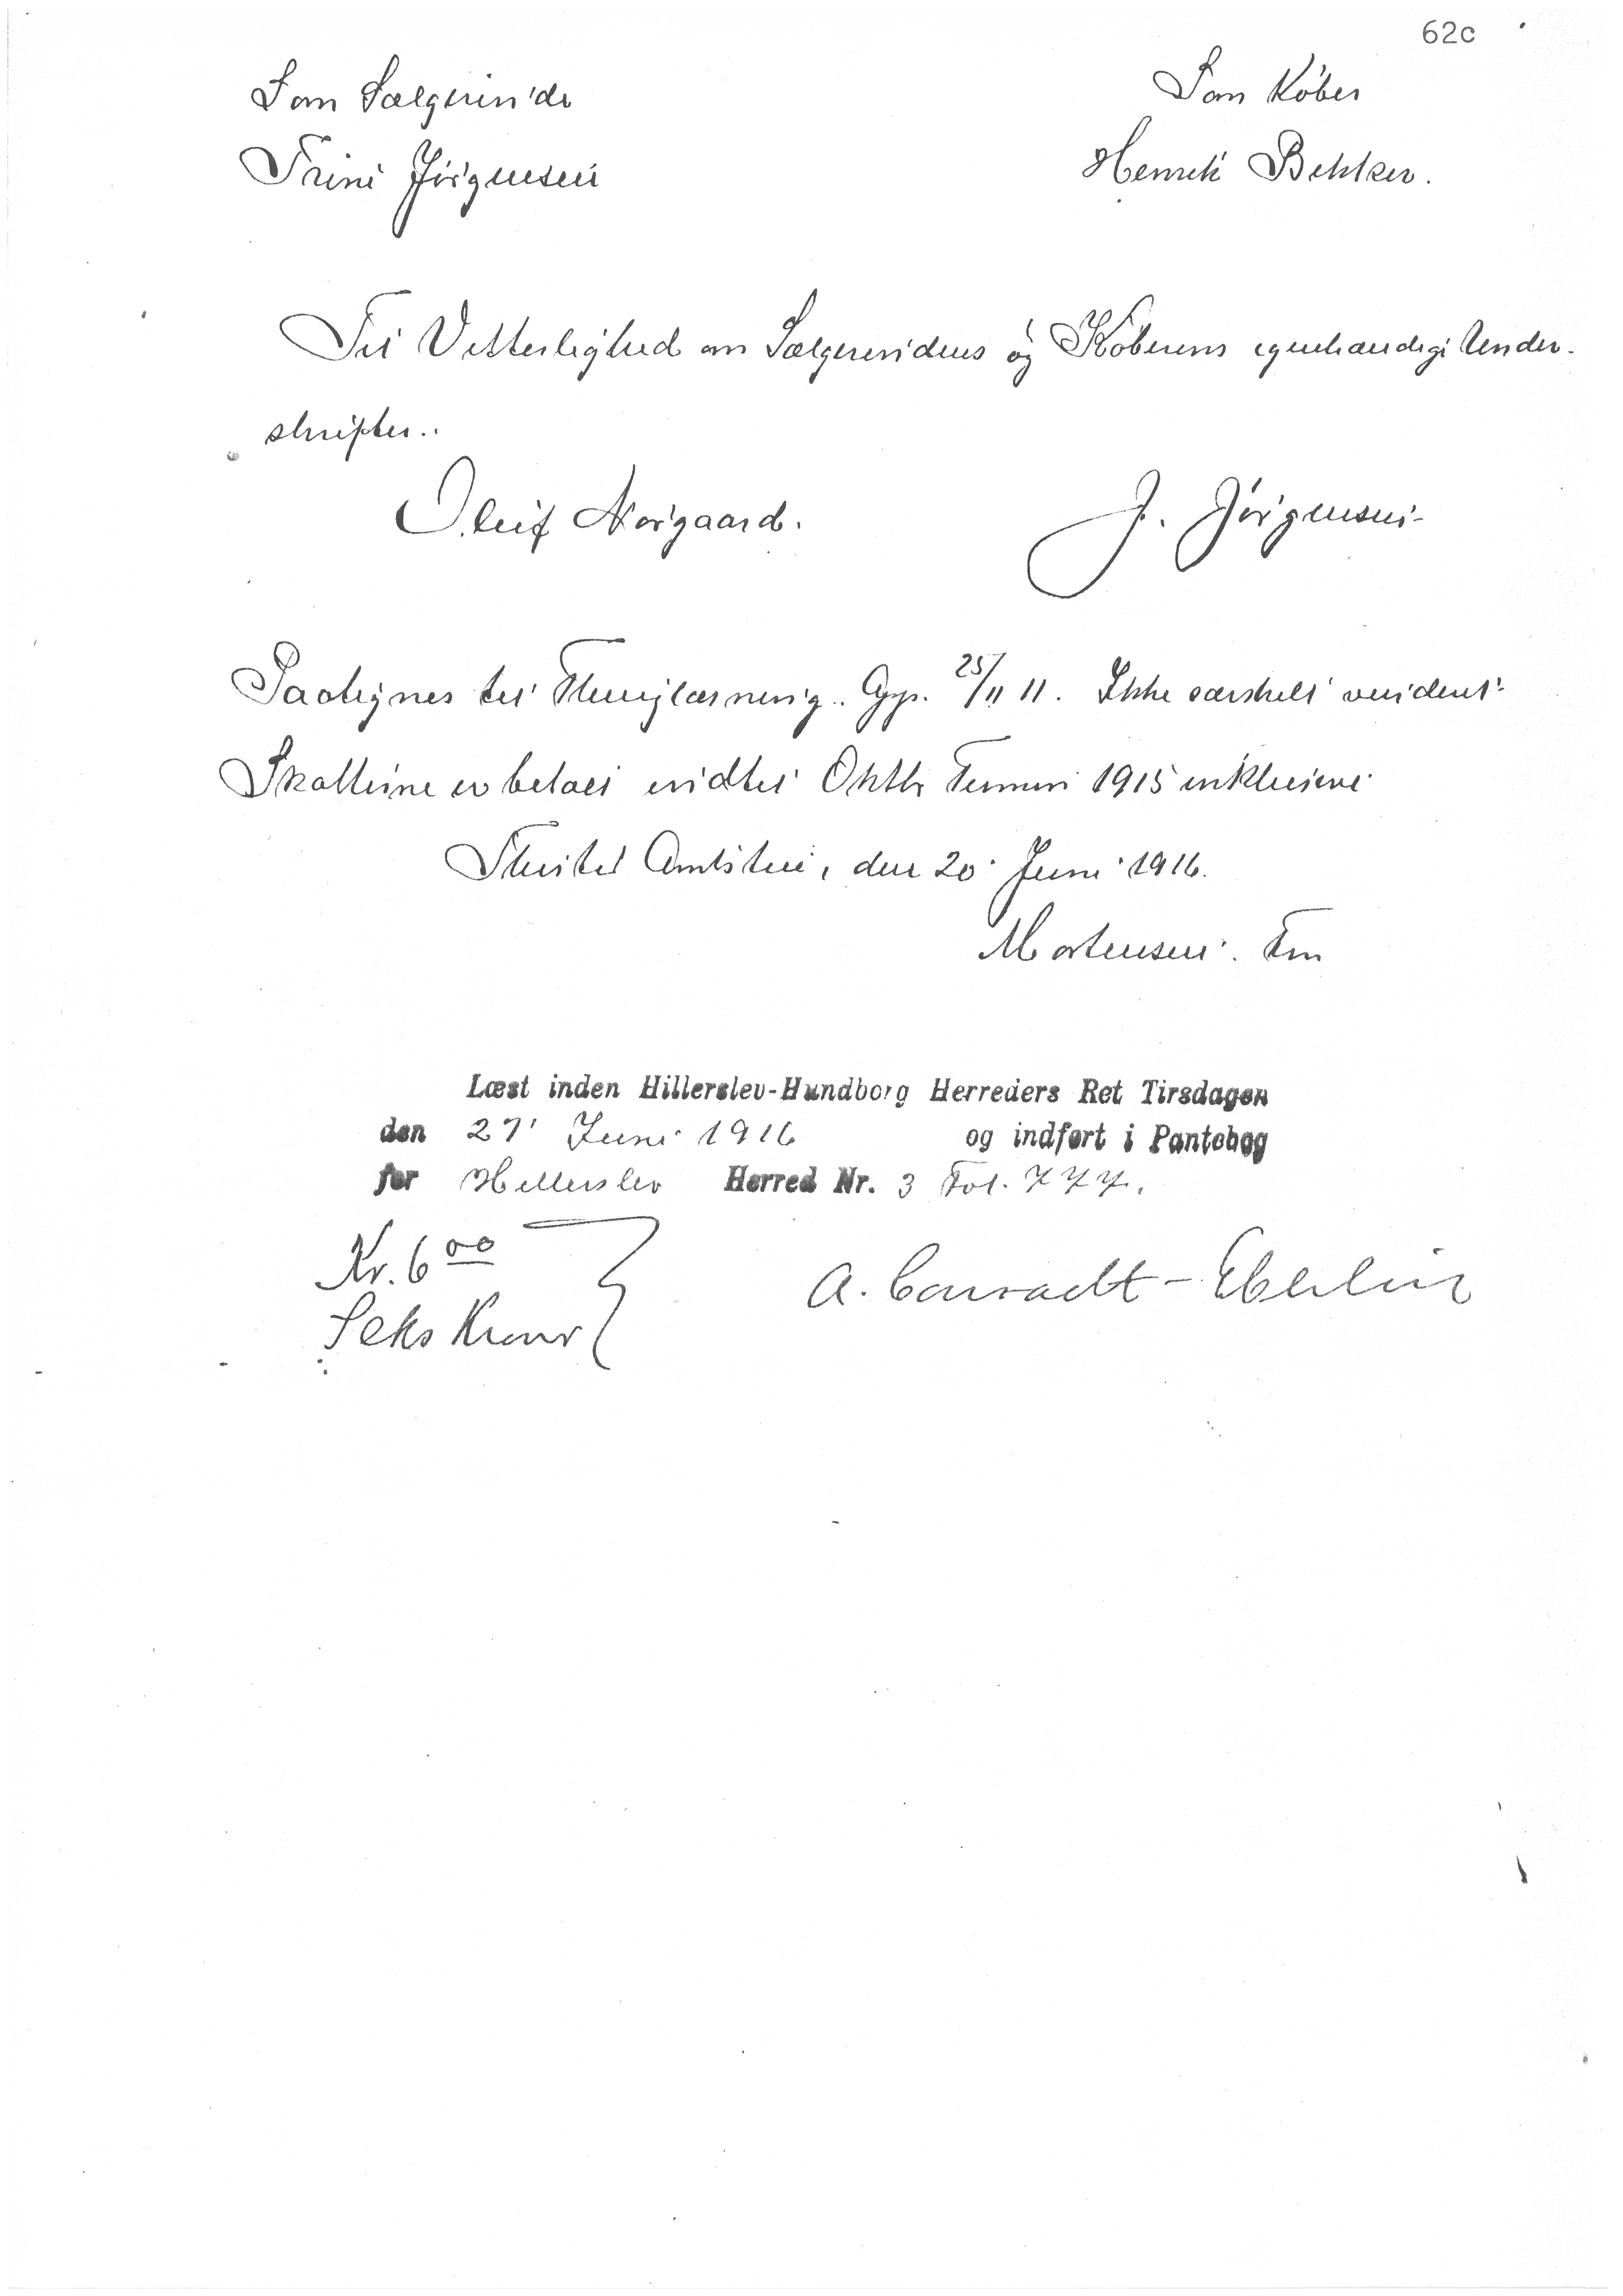 62c
Som Sælgerinde
Som Køber
Trine Jørgensen
Henrik Bekker.
Til Vitterlighed om Sælgerindens og Køberens egenhændige Under-
skrifter.
Oluf Nørgaard.
J. Jørgensen
Paategnes til Thinglæsning. Gp. 25/11 11. Ikke særskilt vurderet
Skatterne er betalt indtil Oktbr Termin 1915 inklusive
Thisted Amtstue, den 20 Juni 1916.
Mortensen. Fm
Læst inden Hillerslev-Hundborg Herreders Ret Tirsdagen
den 27 Juni 1916 og indført i Pantebog
for Hillerslev Herred Nr. 3 Fol. 777.
Kr. 6 00
Seks Kroner
A. Conradt-Eberlin